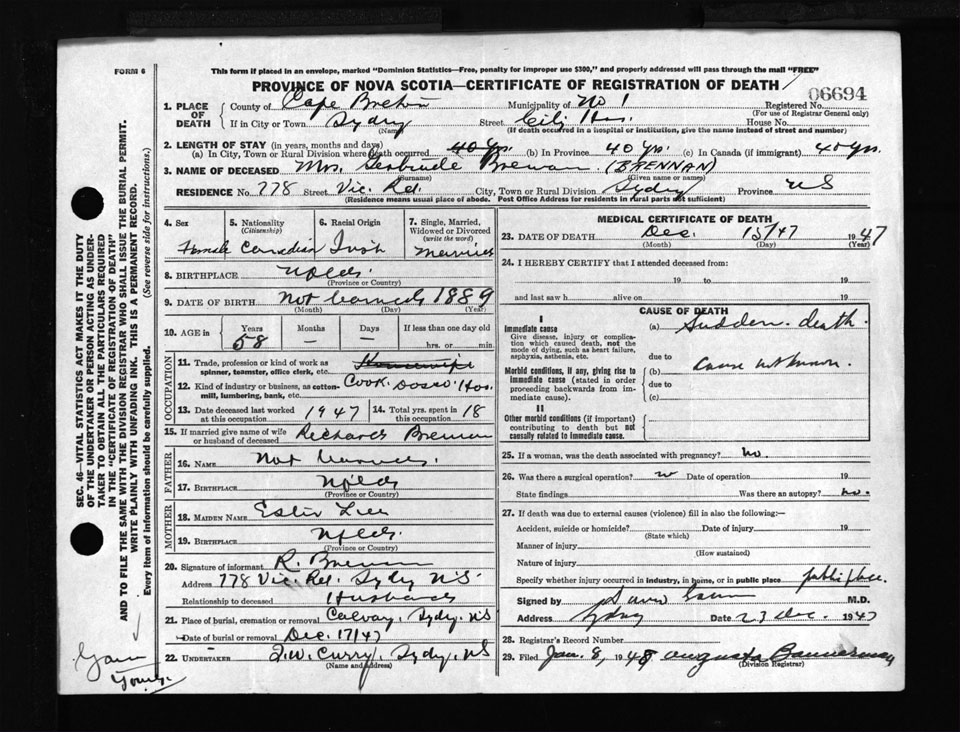 FORM 6
This form if placed in an envelope, marked "Dominion Statistics—Free, penalty for improper use $300," and properly addressed will pass through the mail "FREE"
PROVINCE OF NOVA SCOTIA—CERTIFICATE OF REGISTRATION OF DEATH
06694
1. PLACE OF DEATH County of Cape Breton Municipality of No 1 Registered No.
(For use of Registrar General only)
If in City or Town Sydney Street City Hos. House No.
(Name) (If death occurred in a hospital or institution, give the name instead of street and number)
2. LENGTH OF STAY (in years, months and days)
(a) In City, Town or Rural Division where death occurred 40 yrs. (b) In Province 40 yrs. (c) In Canada (if immigrant) 40 yrs.
3. NAME OF DECEASED Mrs. Gertrude Brennan (BRENNAN)
(Surname) (Given name or names)
RESIDENCE No. 778 Street Vic. Rd. City, Town or Rural Division Sydney Province NS
(Residence means usual place of abode. Post Office Address for residents in rural parts not sufficient)
4. Sex 5. Nationality (Citizenship) 6. Racial Origin 7. Single, Married, Widowed or Divorced (write the word)
Female Canadian Irish Married
8. BIRTHPLACE Nfld.
(Province or Country)
9. DATE OF BIRTH Not learned 1889
(Month) (Day) (Year)
10. AGE in Years Months Days If less than one day old
58 — — hrs. or min.
OCCUPATION
11. Trade, profession or kind of work as spinner, teamster, office clerk, etc. Housewife
12. Kind of industry or business, as cotton-mill, lumbering, bank, etc. Cook Dosco Hos.
13. Date deceased last worked at this occupation 1947 14. Total yrs. spent in this occupation 18
15. If married give name of wife or husband of deceased Richard Brennan
FATHER
16. NAME Not learned.
17. BIRTHPLACE Nfld
(Province or Country)
MOTHER
18. MAIDEN NAME Ester
19. BIRTHPLACE Nfld.
(Province or Country)
20. Signature of informant R. Brennan
Address 778 Vic. Rd. Sydney NS
Relationship to deceased Husband
21. Place of burial, cremation or removal Calvary, Sydney, NS
Date of burial or removal Dec. 17/47
22. UNDERTAKER T.W. Curry, Sydney, NS
(Name and address)
MEDICAL CERTIFICATE OF DEATH
23. DATE OF DEATH Dec. 15/47 1947
(Month) (Day) (Year)
24. I HEREBY CERTIFY that I attended deceased from:
19 to 19
and last saw h alive on 19
CAUSE OF DEATH
I
Immediate cause (a) Sudden death.
Give disease, injury or complication which caused death, not the mode of dying, such as heart failure, asphyxia, asthenia, etc.
due to
Morbid conditions, if any, giving rise to immediate cause (stated in order proceeding backwards from immediate cause). (b) Cause unknown.
due to
(c)
II
Other morbid conditions (if important) contributing to death but not causally related to immediate cause.
25. If a woman, was the death associated with pregnancy? no.
26. Was there a surgical operation? no Date of operation 19
State findings Was there an autopsy? no.
27. If death was due to external causes (violence) fill in also the following:—
Accident, suicide or homicide? Date of injury 19
(State which)
Manner of injury
(How sustained)
Nature of injury
Specify whether injury occurred in industry, in home, or in public place public place.
Signed by M.D.
Address Sydney Date 23 Dec. 1947
28. Registrar's Record Number
29. Filed Jan. 8, 1948 Augusta Bannerman
(Division Registrar)
SEC. 46—VITAL STATISTICS ACT MAKES IT THE DUTY
OF THE UNDERTAKER OR PERSON ACTING AS UNDER-
TAKER TO OBTAIN ALL THE PARTICULARS REQUIRED
IN THE "CERTIFICATE OF REGISTRATION OF DEATH"
AND TO FILE THE SAME WITH THE DIVISION REGISTRAR WHO SHALL ISSUE THE BURIAL PERMIT.
WRITE PLAINLY WITH UNFADING INK. THIS IS A PERMANENT RECORD.
Every item of information should be carefully supplied. (See reverse side for instructions.)